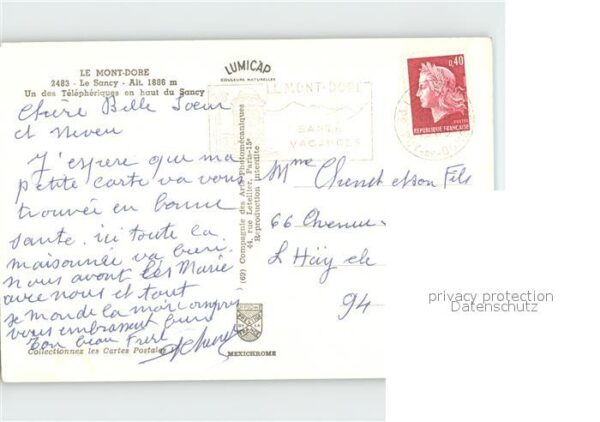 LE MONT-DORE
2483 - Le Sancy - Alt. 1886 m
Un des Téléphériques en haut du Sancy
LUMICAP
COULEURS NATURELLES
LE MONT-DORE
SANTÉ
VACANCES
0,40
POSTES
REPUBLIQUE FRANÇAISE
Chère Belle Soeur
et Neveu
J'espere que ma
petite carte va vous
trouvée en bonne
santé. ici toute la
maisonnée va bien.
nous avont les Marie
avec nous et tout
se monde la
vous embrassent bien
Ton beau Frère
(69) Compagnie des Arts Photomécaniques
44, rue Letellier, Paris-15e
Reproduction interdite
Mme Chenet et son Fils
66 Avenue
L Haÿ de
94
Collectionnez les Cartes Postales
MEXICHROME
privacy protection
Datenschutz